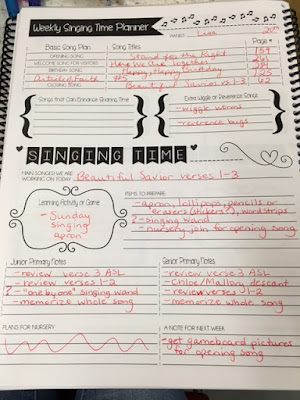 Weekly Singing Time Planner
WARD: Lisa
Basic Song Plan Song Titles Page #
OPENING SONG Stand for the Right 159
WELCOME SONG FOR VISITORS Here We Are Together 261
BIRTHDAY SONG Happy, Happy Birthday 284
Article of Faith #5 125
CLOSING SONG Beautiful Savior v.2 1-3 62
Songs that Can Enhance Sharing Time
Extra Wiggle or Reverence Songs
- wiggle worms
- reverence bugs
SINGING TIME
MAIN SONG(S) WE ARE
WORKING ON TODAY Beautiful Savior verses 1-3
Learning Activity or Game
- Sunday
singing
apron
ITEMS TO PREPARE
- apron, lollipops, pencils or
erasers (stickers?), wordstrips
? - singing wand
- nursery join for opening song
Junior Primary Notes
- review verse 3 ASL
- review verses 1-2
? - "one by one" singing wand
- memorize whole song
Senior Primary Notes
- review verse 3 ASL
- Chloe/Mallory descant
- review verses 1-2
- memorize whole song
PLANS FOR NURSERY
A NOTE FOR NEXT WEEK
- get gameboard pictures
for opening song